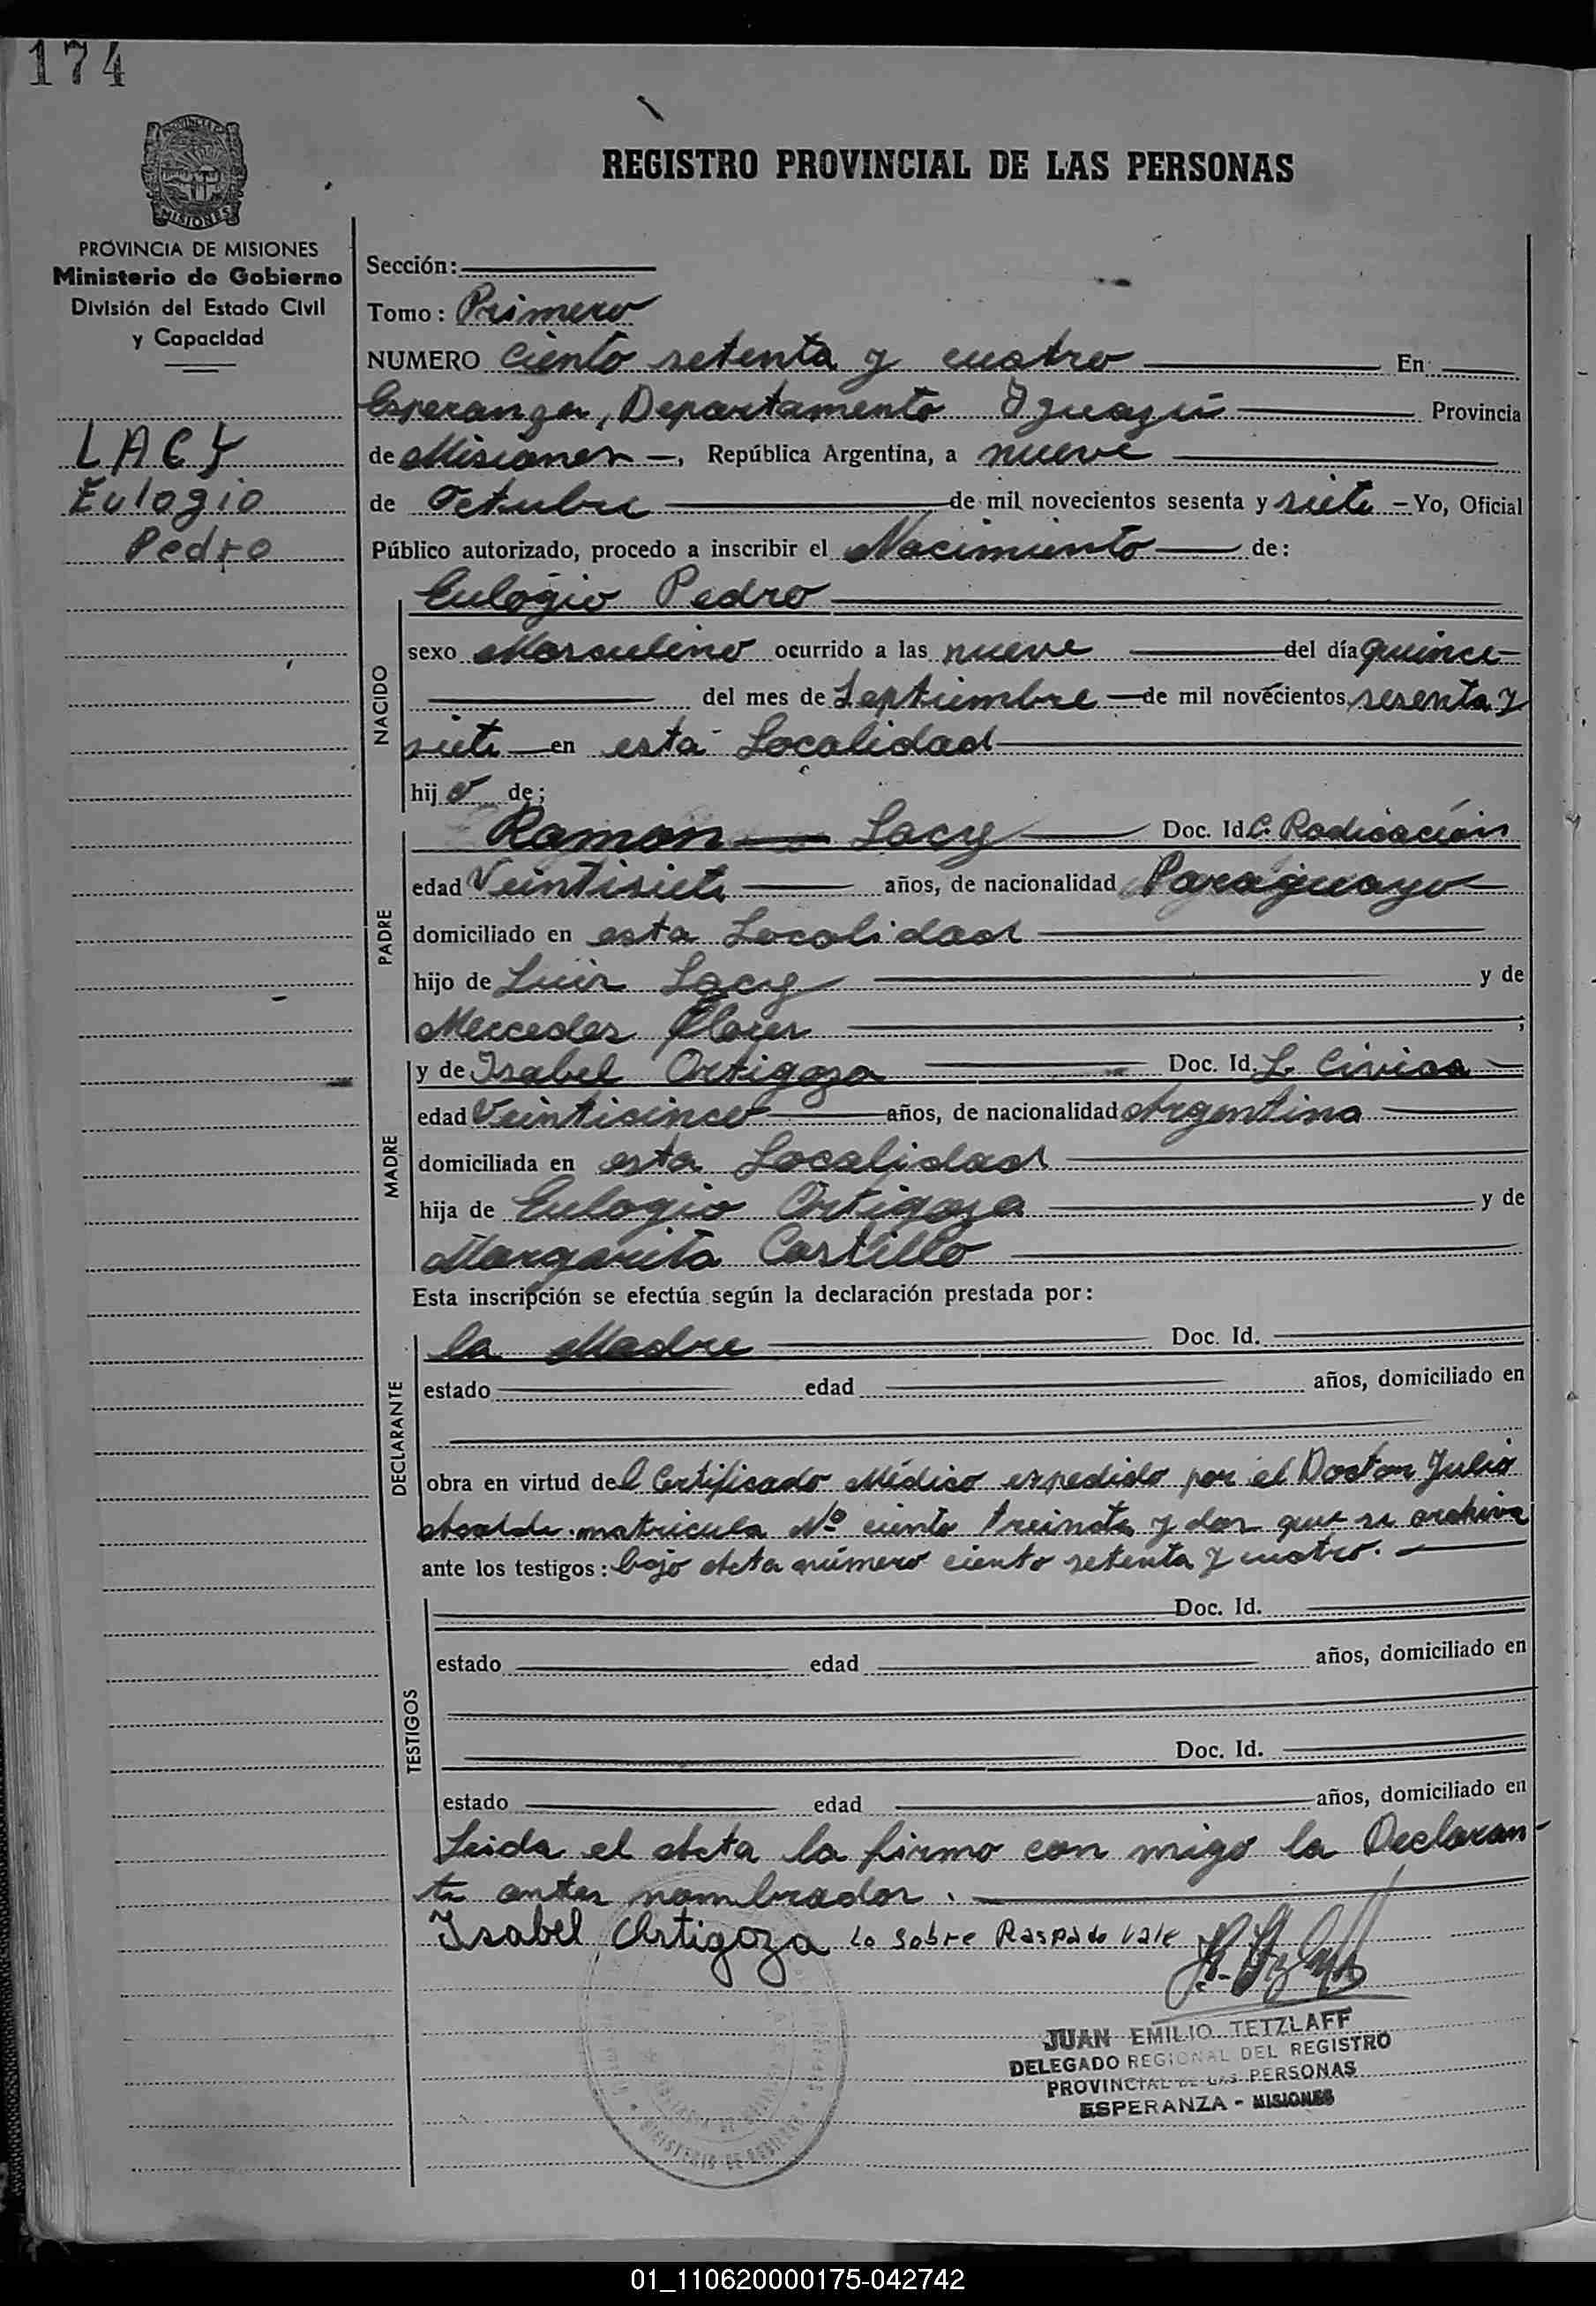 174
PROVINCIA DE MISIONES
Ministerio de Gobierno
División del Estado Civil
y Capacidad
LACY
Eulogio
Pedro
REGISTRO PROVINCIAL DE LAS PERSONAS
Sección:
Tomo: Primero
NUMERO Ciento setenta y cuatro En
Esperanza, Departamento Iguazú Provincia
de Misiones —, República Argentina, a nueve
de Octubre de mil novecientos sesenta y siete - Yo, Oficial
Público autorizado, procedo a inscribir el Nacimiento de:
Eulogio Pedro
NACIDO
sexo Masculino ocurrido a las nueve del día quince
del mes de Septiembre de mil novecientos sesenta y
siete en esta Localidad
hijo de;
PADRE
Ramon Lacy Doc. Id. C. Radicación
edad Veintisiete años, de nacionalidad Paraguayo
domiciliado en esta Localidad
hijo de Luis Lacy y de
Mercedes Flores ;
MADRE
y de Isabel Ortigoza Doc. Id. L. Civica
edad Veinticinco años, de nacionalidad Argentina
domiciliada en esta Localidad
hija de Eulogio Ortigoza y de
Margarita Castillo
Esta inscripción se efectúa según la declaración prestada por:
DECLARANTE
la Madre Doc. Id.
estado edad años, domiciliado en
obra en virtud del Certificado Médico expedido por el Doctor Julio
matricula Nº ciento treinta y dos que se archiva
ante los testigos: bajo Acta número ciento setenta y cuatro.
TESTIGOS
Doc. Id.
estado edad años, domiciliado en
Doc. Id.
estado edad años, domiciliado en
Leida el Acta la firmo con migo la Declaran-
te antes nombrados.
Isabel Ortigoza Lo sobre Raspado vale
JUAN EMILIO TETZLAFF
DELEGADO REGIONAL DEL REGISTRO
PROVINCIAL DE LAS PERSONAS
ESPERANZA - MISIONES
01_110620000175-042742